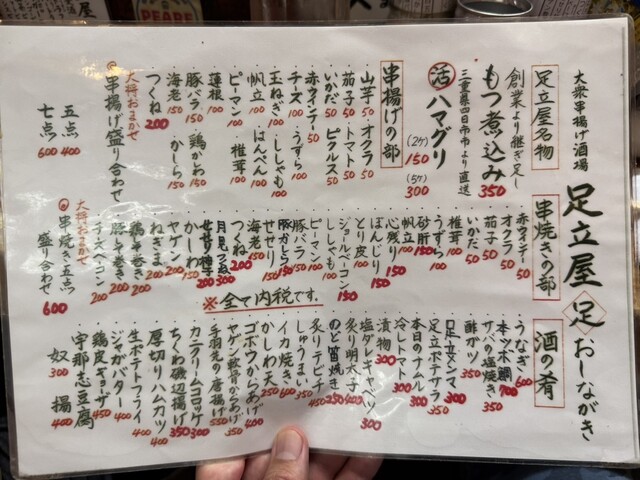 大衆串揚げ酒場
足立屋
足
おしながき
足立屋名物
創業より継ぎ足し
もつ煮込み 350
三重県四日市市より直送
活 ハマグリ
(2ケ) 150
(5ケ) 300
串揚げの部
山芋 50
オクラ 50
茄子 50
トマト 50
いかだ 50
ピクルス 50
赤ウインナー 50
チーズ 100
うずら 100
玉ねぎ 100
ししゃも 100
帆立 100
はんぺん 100
ピーマン 100
椎茸 100
蓮根 100
豚バラ 150
鶏かわ 150
海老 150
かしら 150
つくね 200
大将おまかせ
串揚げ盛り合わせ
五点 400
七点 600
串焼きの部
赤ウインナー 50
オクラ 50
茄子 50
いかだ 50
椎茸 100
うずら 100
帆立 100
砂肝 150
心残り 150
ぼんじり 150
とり皮 150
ジョールベーコン 150
ししゃも 100
ピーマン 100
豚バラ 150
豚かしら 150
せせり 150
海老 150
つくね 200
月見つくね 300
せせり柚子 200
かしわ 150
ヤゲン 200
ねぎま 200
鶏しそ巻き 200
豚しそ巻き 200
チーズベーコン 200
大将おまかせ
串焼き五点
盛り合わせ 600
※全て内税です。
酒の肴
うなぎ 600
本ツボ鯛 700
サバの塩焼き 350
酢ガツ 350
足立メンマ 300
足立ポテサラ 350
本日のナムル 300
冷しトマト 300
漬物 300
塩ダレキャベツ 300
炙り明太子 400
のど笛焼き 250
炙りテビチ 450
しゅうまい 350
イカ焼き 600
かしわ天 250
ゴボウからあげ 400
ヤゲン軟骨からあげ 400
手羽元の唐揚げ 550
カニクリームコロッケ 300
ちくわ磯辺揚げ 350
厚切りハムカツ 400
生ポテトフライ 400
ジャガバター 400
鶏皮ギョーザ 450
宇那志豆腐 400
奴 300
揚 400